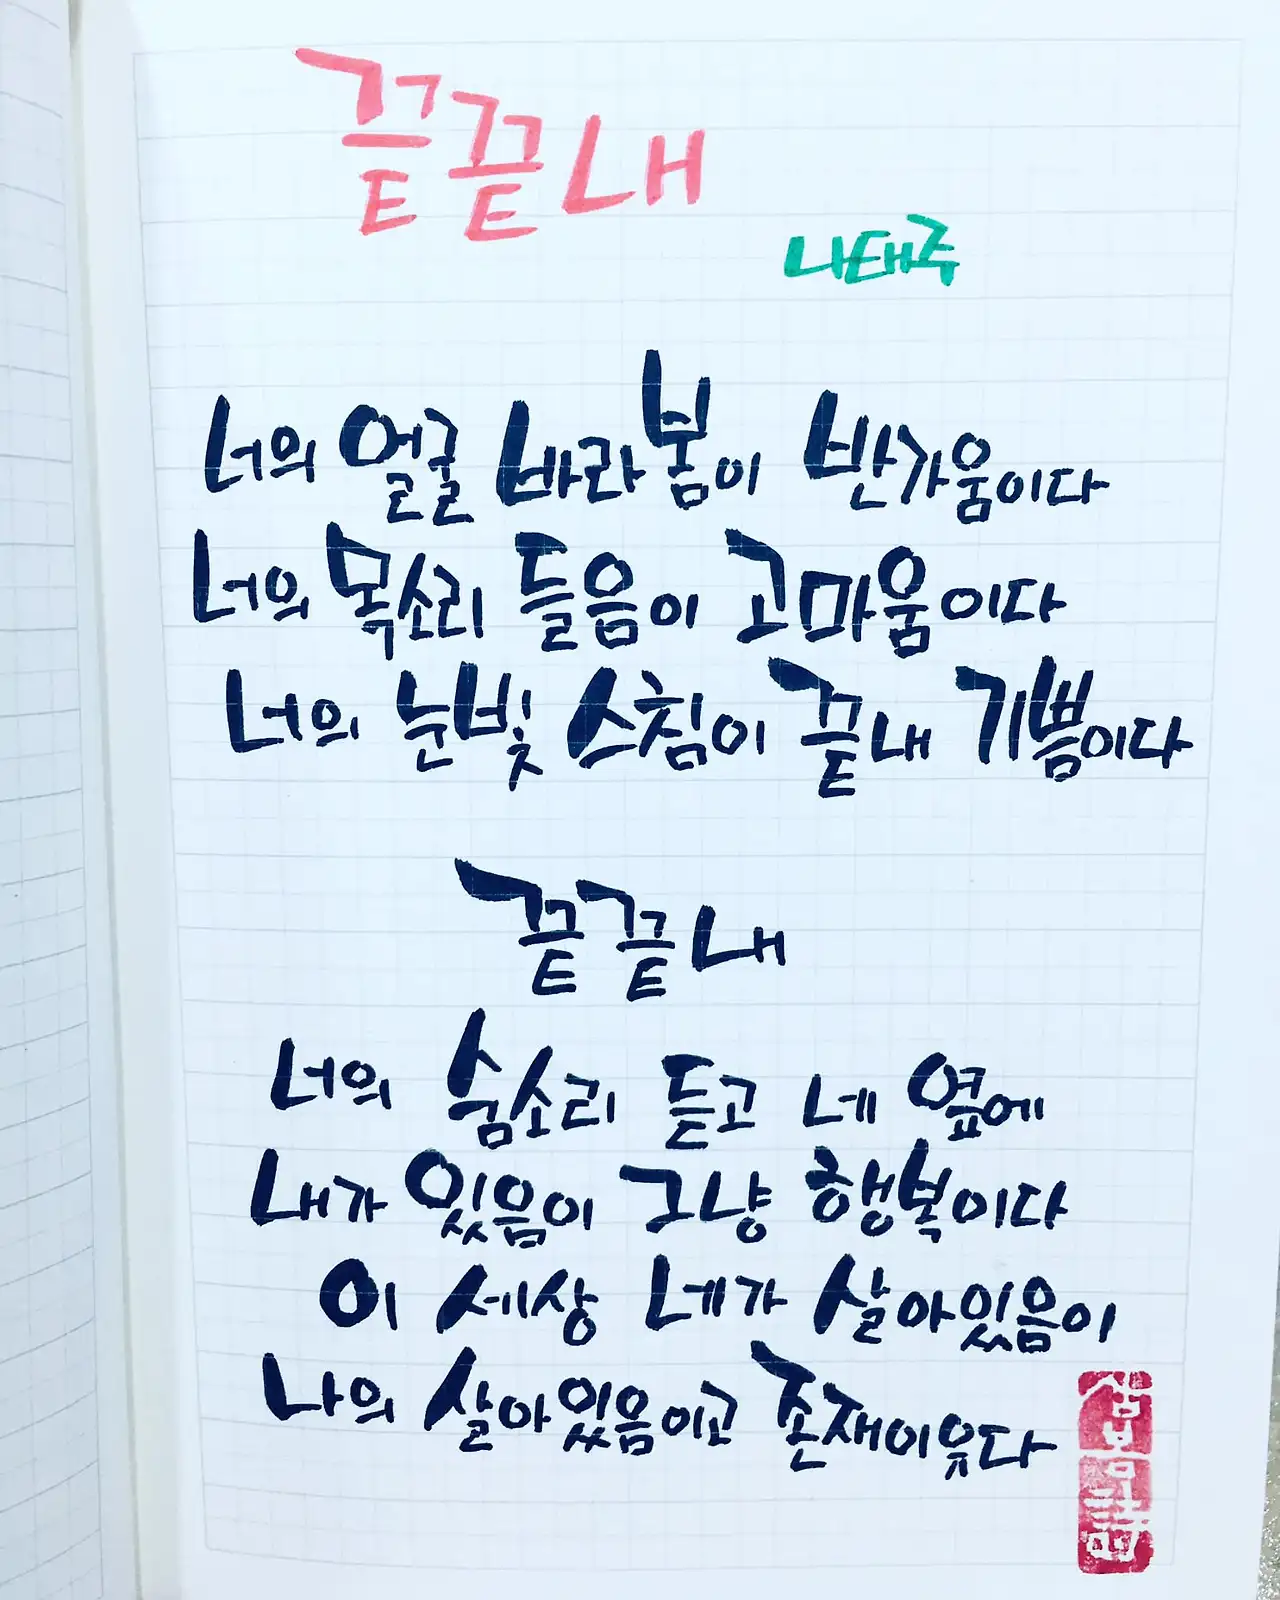 끝끝내
나태주
너의 얼굴 바라봄이 반가움이다
너의 목소리 들음이 고마움이다
너의 눈빛 스침이 끝내 기쁨이다
끝끝내
너의 숨소리 듣고 네 옆에
내가 있음이 그냥 행복이다
이 세상 네가 살아있음이
나의 살아있음이고 존재이유다